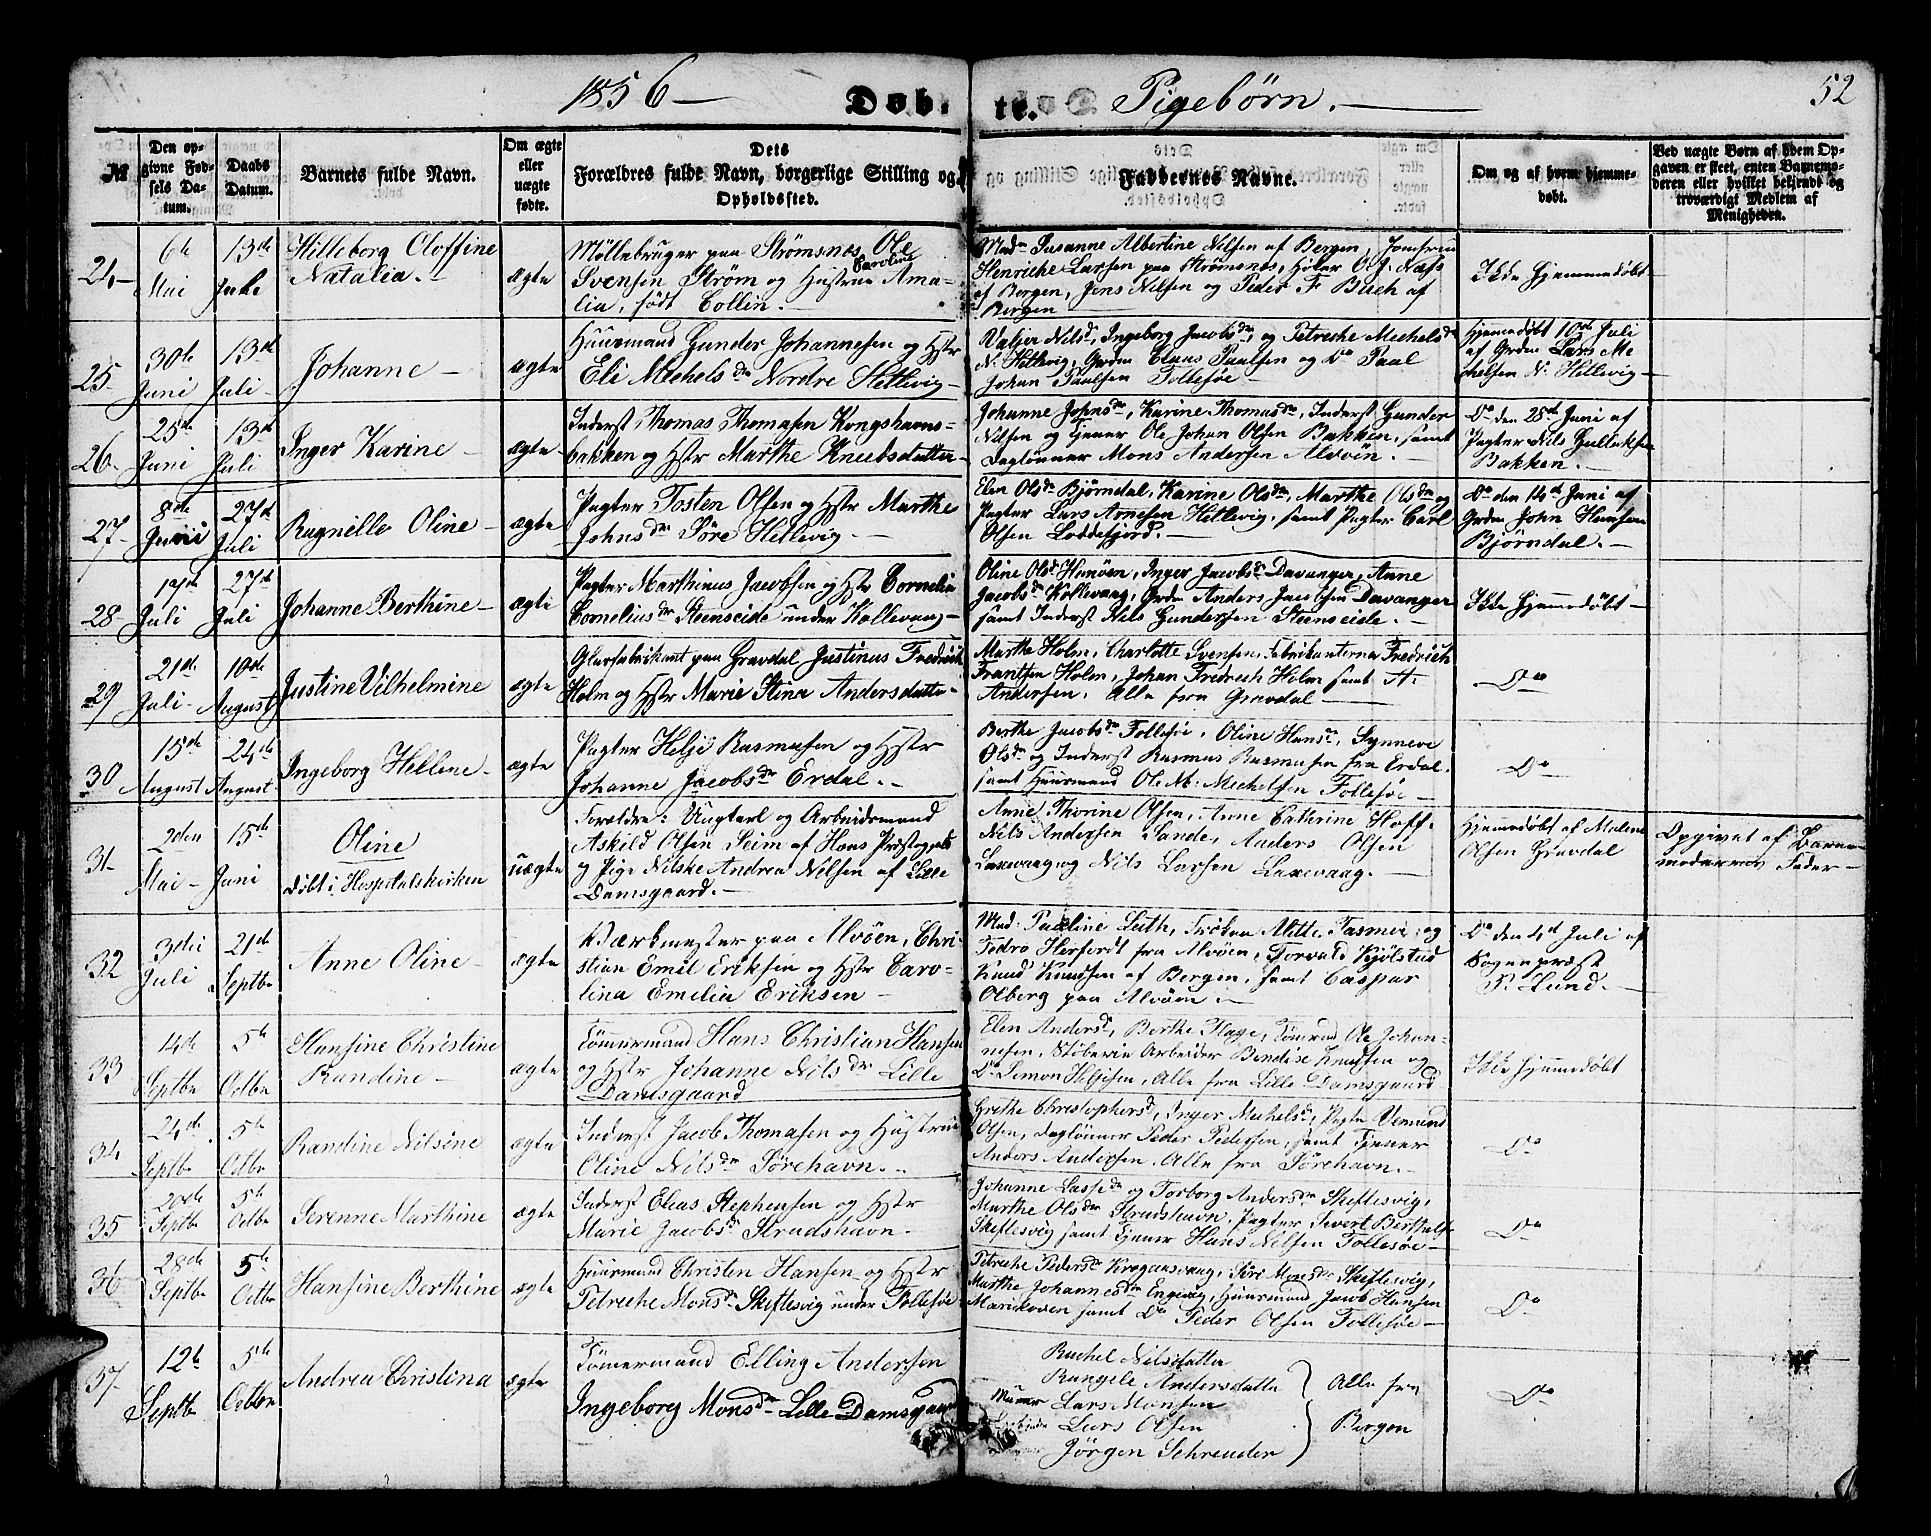 1856 — Døb- te. Pigebørn. —
52
№
Den opgivne Fødsels Datum.
Daabs Datum.
Barnets fulde Navn.
Om ægte eller uægte fødte.
Dets Forældres fulde Navn, borgerlige Stilling og Opholdssted.
Faddernes Navne.
Om og af hvem hjemmedøbt.
Ved uægte Børn af hvem Opgaven er skeet, enten Barnemoderen eller hvilket bekjendt og troværdigt Medlem af Menigheden.
24-
6te Mai
13de Juli
Hilleborg Cloffine
Natalia. -
ægte
Møllebruger paa Strømsnes Ole
Svensen Strøm og Hustrue Caroline Ama-
lia, født Collin. -
Mad. Susanne Albertine Nilsen af Bergen, Jomfrue
Henriche Larsen paa Strømsnes, Høker O. J. Næss
af Bergen, Jens Nilsen og Peder F. Buch af
Bergen
Ikke Hjemmedøbt
25-
30te Juni
13de Juli
Johanne -
ægte
Huusmand Gunder Johannesen og Hstr
Eli Mechelsdr Nordre Hetlevig -
Valjer Nilsdr, Ingeborg Jacobsdr, og Petreche Mechelsdr
N. Hetlevig, Grdm Claus Paulsen og Do Paal
Johan Paulsen Follesøe -
Hjemmedøbt 10de Juli
af Grdm Lars Me
chelsen N. Hetlevig -
26-
25de Juni
13de Juli
Inger Karine -
ægte
Inderst Thomas Thomasen Kongshavns-
bakken og Hstr Marthe Knudsdatter -
Johanne Johnsdr, Karine Thomasdr, Inderst Gunder
Nilsen og Tjener Ole Johan Olsen Bakken, samt
Daglønner Mons Andersen Alvøen.
Do den 28de Juni af
Pagter Nils Gulleksen
Bakken. -
27-
8de Juni
27de Juli
Ragnille Oline -
ægte
Pagter Tosten Olsen og Hstr Marthe
Johnsdr Søre Hetlevig. -
Elen Olsdr Bjørndal, Karine Olsdr, Marthe Olsdr og
Pagter Lars Arnesen Hetlevig, samt Pagter Carl
Olsen Loddefjord. -
Do den 14de Juni af
Grdm John Hansen
Bjørndal. -
28-
17de Juli
27de Juli
Johanne Berthine -
ægte
Pagter Marthinus Jacobsen og Hstr Cornelia
Corneliusdr Steenseide under Kollevaag -
Oline Olsdr Hanøen, Inger Jacobsdr Davanger, Anne
Jacobsdr Kollevaag, Grdm Anders Jacobsen Davanger
samt Inderst Nils Gundersen Steenseide. -
Ikke Hjemmedøbt -
29
21de Juli -
10de August
Justine Vilhelmine
ægte
Glasfabrikant paa Gravdal Justinus Fredrich
Holm og Hstr Marie Stina Andersdatter -
Marthe Holm, Charlotte Svensen, Fabrikanterne Fredrich
Frantsen Holm, Johan Fredrech Holm samt A.
Andersen. Alle fra Gravdal -
Do
30
15de August
24de August
Ingeborg Hellene -
ægte
Pagter Helje Rasmusen og Hstr
Johanne Jacobsdr Erdal. -
Berthe Jacobsdr Follesøe, Oline Hansdr, Synneve
Olsdr og Inderst Rasmus Rasmusen fra Erdal
samt Huusmand Ole M. Mechelsen Follesøe -
Do
31-
2den Mai -
15de Juni
Oline
døbt i Hospitalskirken
uægte
Forældre: Ungkarl og Arbeidsmand
Askild Olsen Seim af Hous Præstegjeld
og Pige Nilske Andrea Nilsen af Lille
Damsgaard. -
Anne Thorine Olsen, Anne Cathrine Hoff.
Nils Andersen Sande, Anders Olsen
Laxevaag og Nils Larsen Laxevaag. -
Hjemmedøbt af Malene
Olsen Gravdal
Opgivet af Barne-
moderens Fader -
32
3die Juli
21de Septbr
Anne Oline -
ægte
Værkmester paa Alvøen, Chri-
stian Emil Eriksen og Hstr Caro-
lina Emelia Eriksen -
Mad. Pauline Leith, Frøken Mette Fasmer, og
Fedra Herfordt fra Alvøen, Torvald Kjølstad
Knud Knudsen af Bergen, samt Caspar
Olberg paa Alvøen. -
Do den 4de Juli af
Sognepræst
S. Lund. -
33
14de Septbr
5te Octbr
Hansine Christine
Randine -
ægte
Tømmermand Hans Christian Hansen
og Hstr Johanne Nilsdr Lille
Damsgaard
Elen Andersdr, Berthe Flage, Tømmd Ole Johan-
nesen, Støberie Arbeider Bendix Knudsen og
Do Simon Heljesen, Alle fra Lille Damsgaard
Ikke Hjemmedøbt
34
24de Septbr
5te Octbr
Randine Nilsine
ægte
Inderst Jacob Thomasen og Hustrue
Oline Nilsdr Sørehavn. -
Grethe Christophersdr, Inger Mechelsdr, Pagter Vemund
Olsen, Daglønner Peder Pedersen, samt Tjener
Anders Andersen. Alle fra Sørehavn. -
Do
35
20de Septbr
5te Octbr
Serenne Marthine
ægte
Inderst Elias Stephensen og Hstr
Marie Jacobsdr Strudshavn -
Johanne Lassedr og Torborg Andersdr Skeflesvig,
Marthe Olsdr Strudshavn, Pagter Sivert Berthels.
Skeflesvig samt Tjener Hans Nilsen Follesøe -
Do
36
28de Septbr
5te Octbr
Hansine Berthine
ægte
Huusmand Christen Hansen og Hstr
Petreche Monsdr Skeflesvig under Follesøe
Petreche Pedersdr Kragensvaag, Siri Monsdr Skeflesvig,
Marthe Johannesdr Engevig, Huusmand Jacob Hansen
Marikoven samt Do Peder Olsen Follesøe -
Do
37-
12te Septbr
5te Octbr
Andrea Christina
ægte
Tømmermand Elling Andersen
Ingeborg Monsdr Lille Damsgaard
Rachel Nilsdatter
Rangele Andersdatter
Murer Lars Monsen
Lars Olsen
Jørgen Schreuder
Alle fra
Bergen
Do